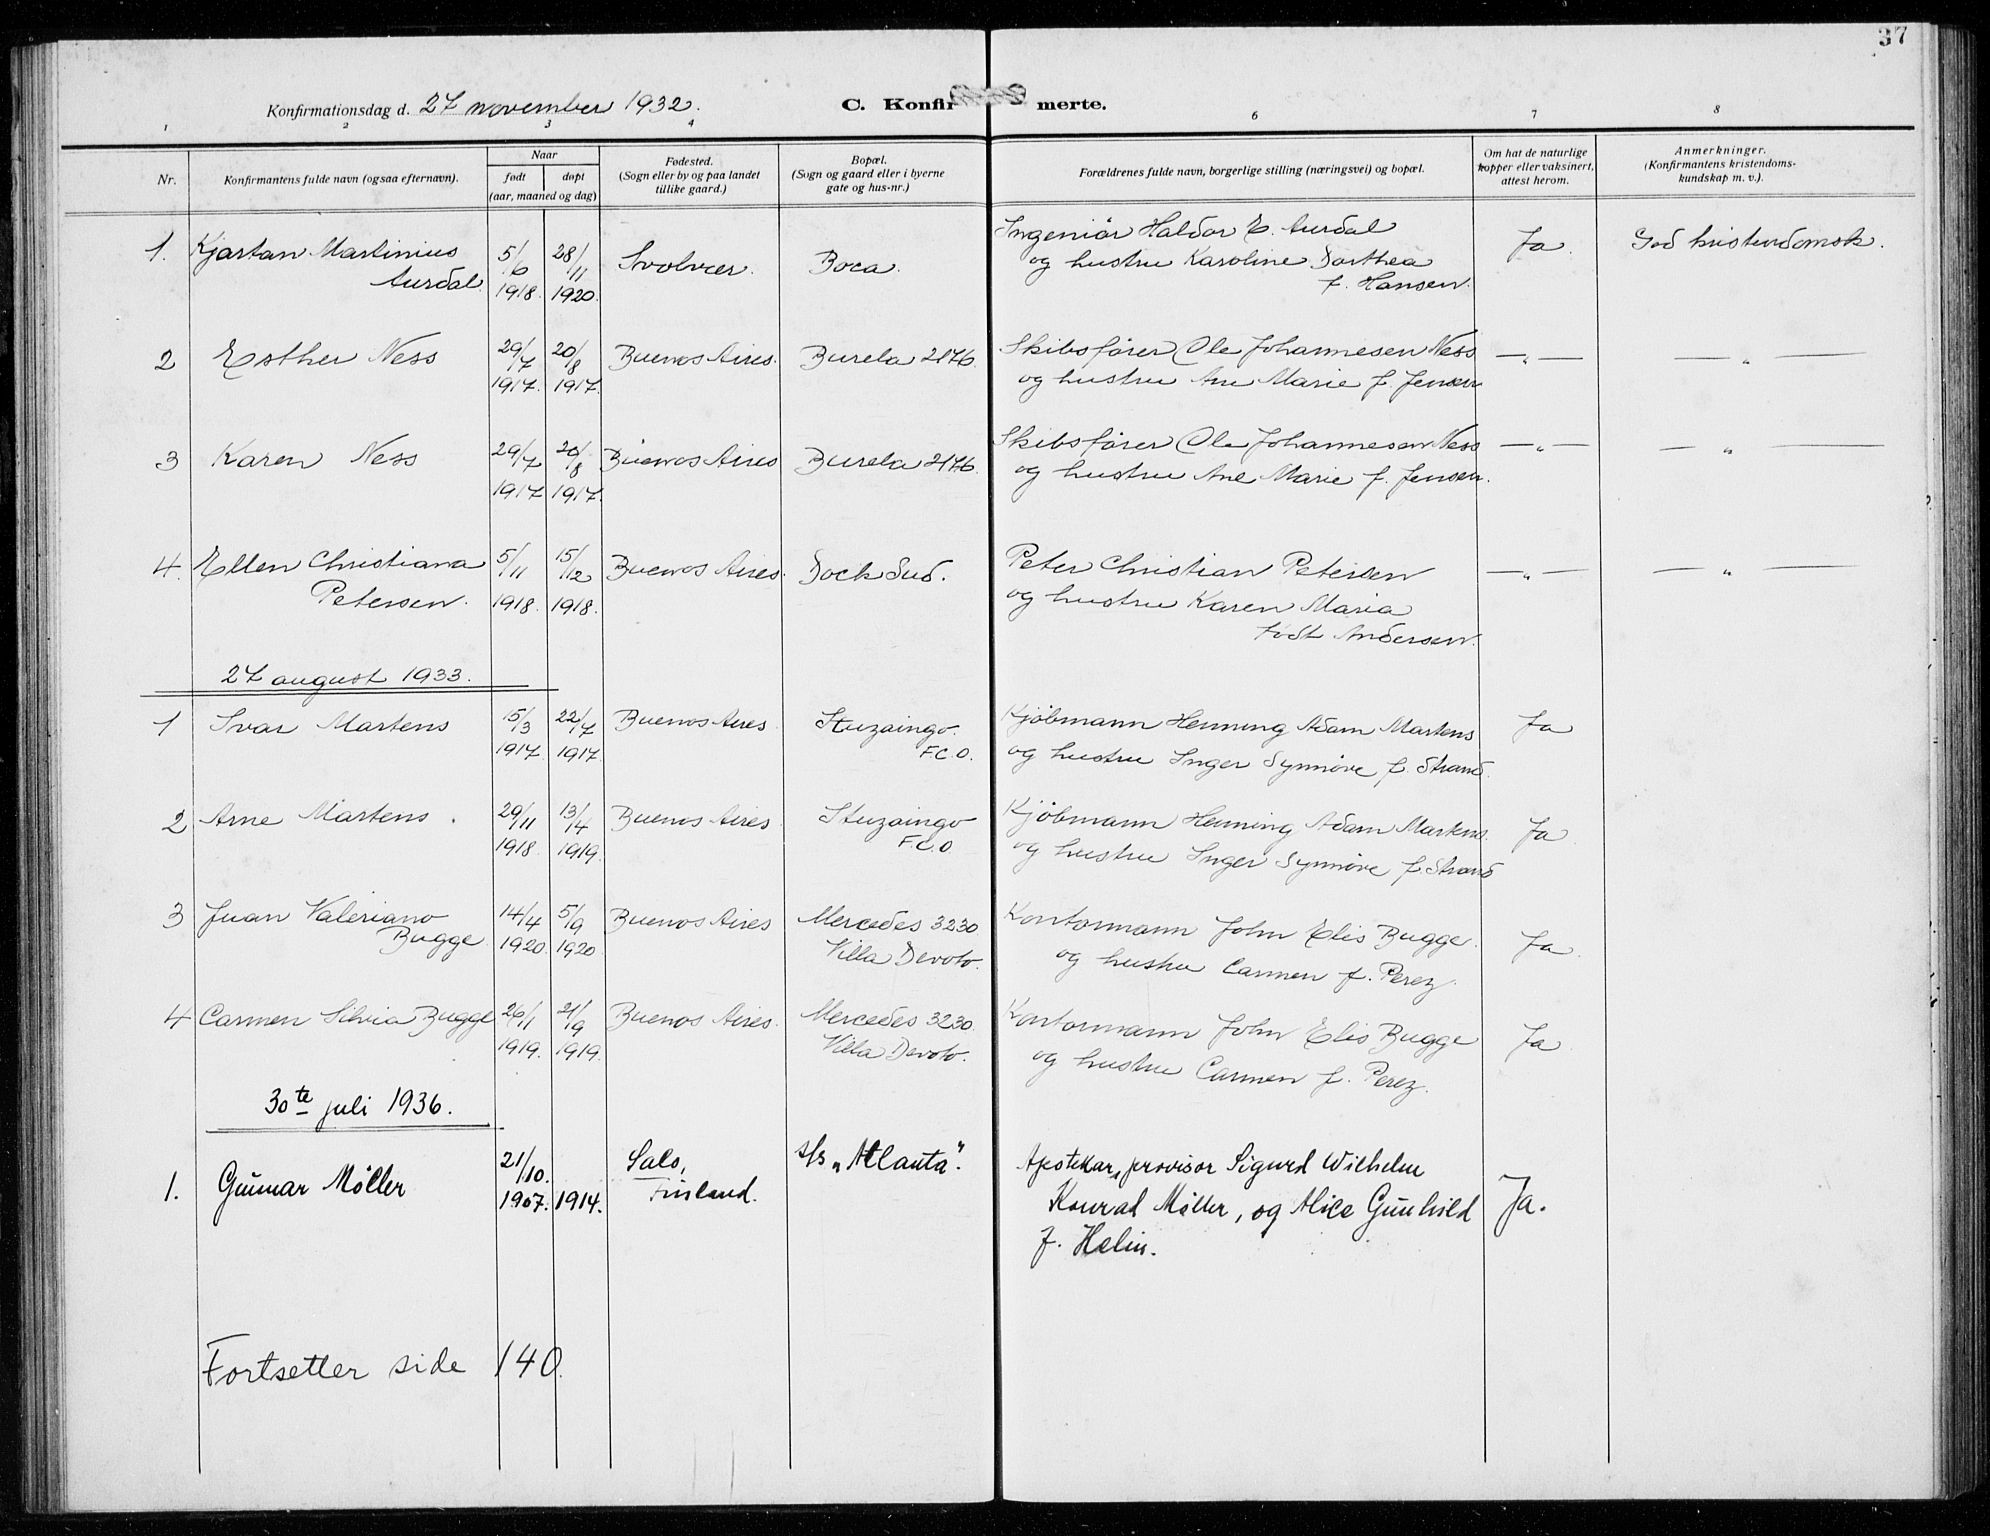 37
Konfirmationsdag d. 27 november 1932. C. Konfirmerte.
1 2 3 4 6 7 8
Nr. Konfirmantens fulde navn (ogsaa efternavn). Naar født døpt (aar, maaned og dag) Fødested. (Sogn eller by og paa landet tillike gaard.) Bopæl. (Sogn og gaard eller i byerne gate og hus-nr.) Forældrenes fulde navn, borgerlige stilling (næringsvei) og bopæl. Om hat de naturlige kopper eller vaksinert, attest herom. Anmerkninger. (Konfirmantens kristendoms-kundskap m. v.).
1. Kjartan Martinius Aurdal. 5/6 1918. 28/11 1920. Svolvær. Boca. Ingeniør Haldor E. Aurdal og hustru Karoline Dorthea f. Hansen. Ja. God kristendomsk.
2 Esther Ness 29/7 1917. 20/8 1917. Buenos Aires. Burela 2176. Skibsfører Ole Johannesen Ness og hustru Ane Marie f. Jensen — „ — — „ —
3 Karen Ness 29/7 1917 20/8 1917. Buenos Aires Burela 2176. Skibsfører Ole Johannesen Ness og hustru Ane Marie f. Jensen. — „ — — „ —
4. Ellen Christiana Petersen. 5/11 1918. 15/12 1918. Buenos Aires. Dock Sud. Peter Christian Petersen og hustru Karen Maria født Andersen. — „ — — „ —
27 august 1933.
1 Ivar Martens 15/3 1917. 22/7 1917. Buenos Aires. Ituzaingo. F.C.O. Kjøbmann Henning Adam Martens og hustru Inger Synnøve f. Strand. Ja
2 Arne Martens. 29/11 1918. 13/14 1919. Buenos Aires. Ituzaingo F.C.O. Kjøbmann Henning Adam Martens. og hustru Inger Synnøve f. Strand Ja
3 Juan Valeriano Bugge 14/4 1920. 5/9 1920 Buenos Aires Mercedes 3230 Villa Devoto. Kontormann John Elis Bugge. og hustru Carmen f. Perez. Ja.
4 Carmen Silvia Bugge 26/1 1919. 21/9 1919. Buenos Aires. Mercedes 3230. Villa Devoto. Kontormann John Elis Bugge og hustru Carmen f. Perez. Ja
30te juli 1936.
1. Gunnar Møller 21/10. 1907. 1914. Salo, Finland. s/s „Atlanta“. Apotekar, provisor Sigurd Wilhelm Konrad Møller, og Alice Gunhild f. Helin. Ja.
Fortsetter side 140.